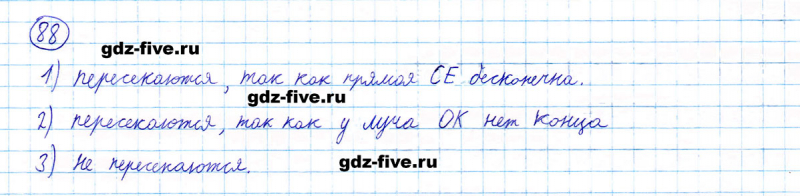 88
gdz-five.ru
1) пересекаются, так как прямая CE бесконечна.
gdz-five.ru
2) пересекаются, так как у луча OK нет конца
3) Не пересекаются.
gdz-five.ru